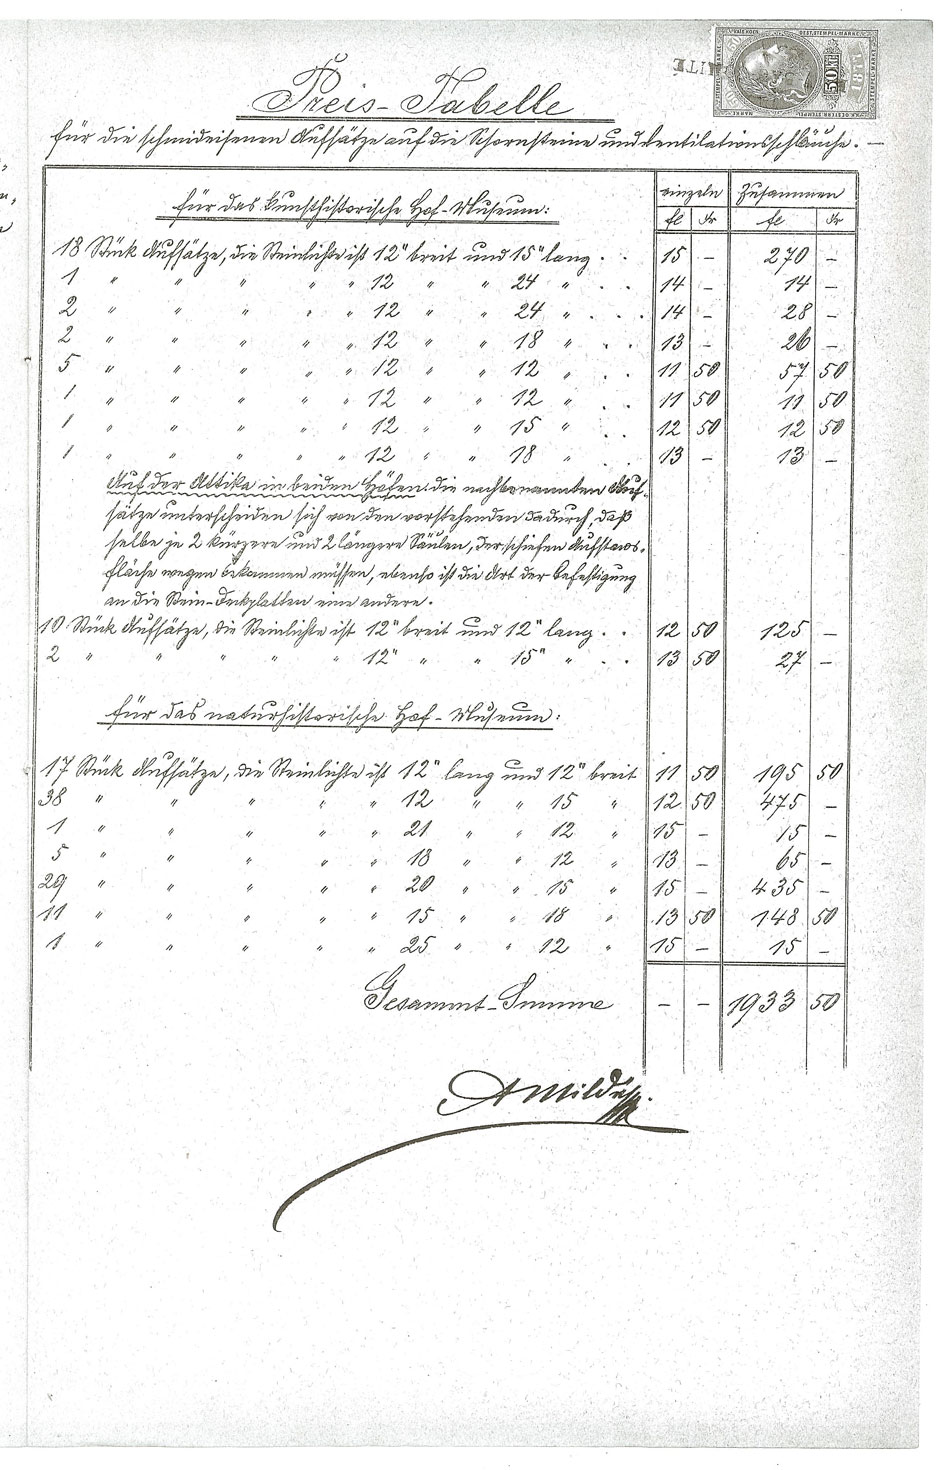 50 Kr
1877
Preis-Tabelle
für die schmideisenen Aufsätze auf die Schornsteine und Ventilationsschläuche. —
für das kunsthistorische Hof-Museum: einzeln Zusammen
fl kr fl kr
18 Stück Aufsätze, die Steinlichte ist 12" breit und 15" lang . . 15 – 270 –
1 " " " " " 12 " " 24 " . . 14 – 14 –
2 " " " " " 12 " " 24 " . . . 14 – 28 –
2 " " " " " 12 " " 18 " . . 13 – 26 –
5 " " " " " 12 " " 12 " . . 11 50 57 50
1 " " " " " 12 " " 12 " . . 11 50 11 50
1 " " " " " 12 " " 15 " . . 12 50 12 50
1 " " " " " 12 " " 18 " . . 13 – 13 –
Auf der Attika in beiden Höfen: die nachbenannten Auf-
sätze unterscheiden sich von den vorstehenden dadurch, daß
selbe je 2 kürzere und 2 längere Säulen, der schiefen Aufstands-
fläche wegen bekommen müssen, ebenso ist die Art der Befestigung
an die Stein-Deckplatten eine andere.
10 Stück Aufsätze, die Steinlichte ist 12" breit und 12" lang . . 12 50 125 –
2 " " " " " 12" " " 15" " . . 13 50 27 –
für das naturhistorische Hof-Museum:
17 Stück Aufsätze, die Steinlichte ist 12" lang und 12" breit 11 50 195 50
38 " " " " " 12 " " 15 " 12 50 475 –
1 " " " " " 21 " " 12 " 15 – 15 –
5 " " " " " 18 " " 12 " 13 – 65 –
29 " " " " " 20 " " 15 " 15 – 435 –
11 " " " " " 15 " " 18 " 13 50 148 50
1 " " " " " 25 " " 12 " 15 – 15 –
Gesammt-Summe – – 1933 50
A Milde